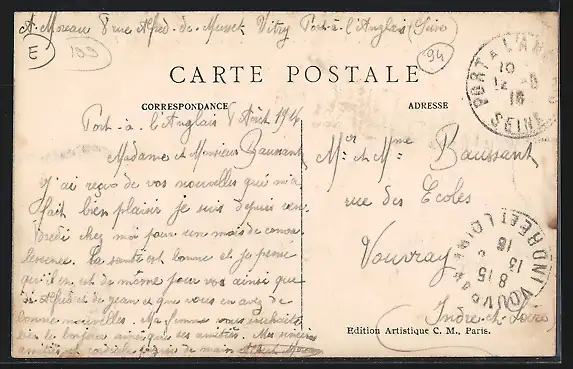 A. Moreau 8 rue Alfred-de-Musset Vitry Port-à-l'Anglais (Seine)
E
199
94
CARTE POSTALE
CORRESPONDANCE
ADRESSE
PORT A L'AN
10
12 - 8
16
SEINE
Port-à-l'Anglais Août 191
Madame et Monsieur Baussant
J'ai reçus de vos nouvelles qui m'a
fait bien plaisir je suis depuis ven
dredi chez moi pour un mois de conva
lescence. La santé est bonne et je pense
qu'il en est de même pour vous ainsi que
de Alfred et de jean et que vous en avez de
bonne nouvelles. Ma femme vous souhaite
bien le bonjour ainsi que ses amitiés. Mes sincères
amitiés et cordiale poignée de main Albert Moreau
Mr et Mme Baussant
rue des Ecoles
Vouvray
Indre-et-Loire
VOUVRAY
8 15
13
16
INDRE ET LOIRE
Edition Artistique C. M., Paris.